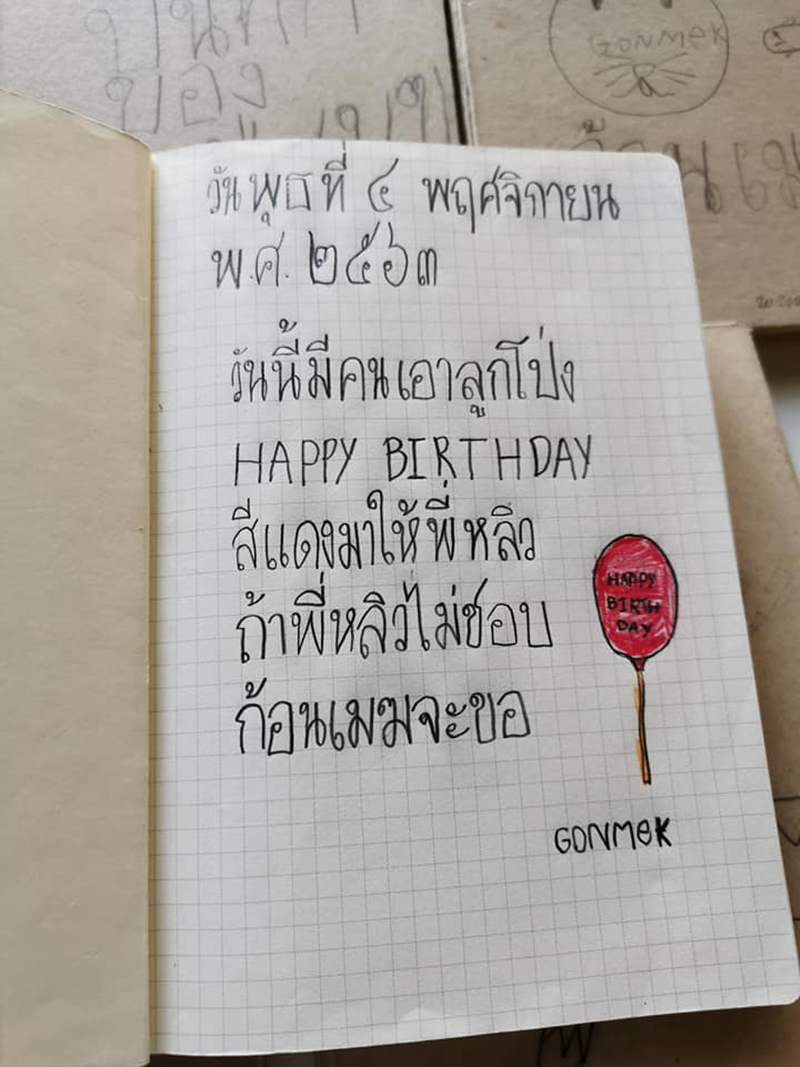 บันทึก
ของ
GONMEK
ก้อนเม
วันพุธที่ ๔ พฤศจิกายน
พ.ศ. ๒๕๖๓
วันนี้มีคนเอาลูกโป่ง
HAPPY BIRTHDAY
สีแดงมาให้พี่หลิว
ถ้าพี่หลิวไม่ชอบ
ก้อนเมฆจะขอ
HAPPY
BIRTH
DAY
GONMEK